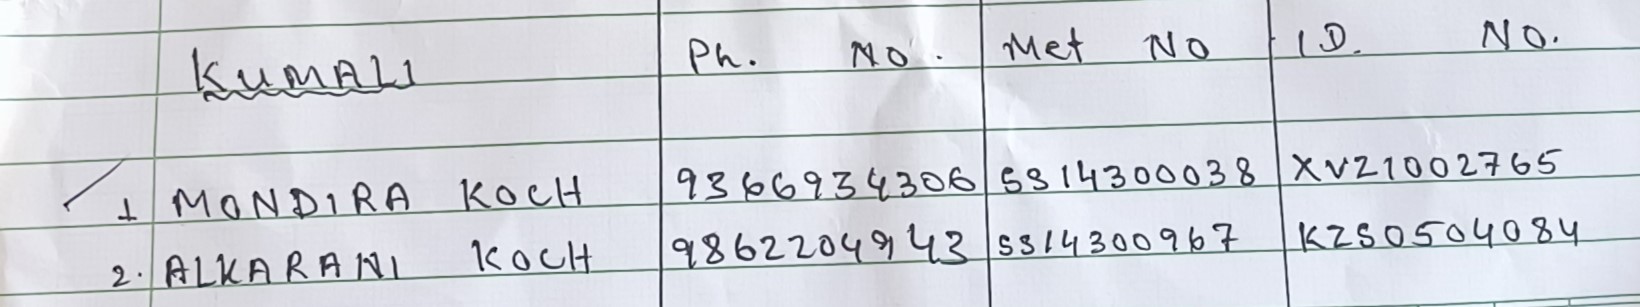 KUMALI Ph. No. Met No I.D. No.
1 MONDIRA KOCH 9366934306 5314300038 XVZ1002765
2. ALKARANI KOCH 9862204943 5314300967 KZS0504084